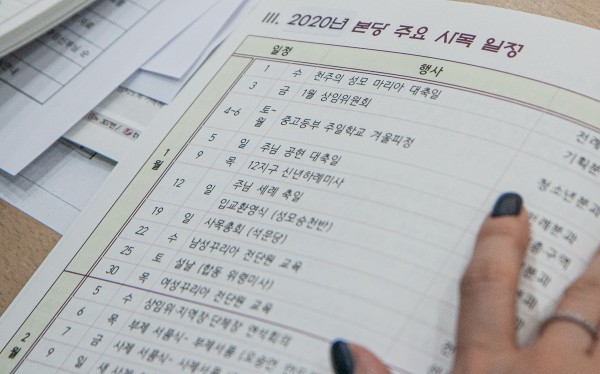 III. 2020년 본당 주요 사목 일정
일정 행사
1월
1 수 천주의 성모 마리아 대축일 전례
3 금 1월 상임위원회 기획분
4-6 토-월 중고등부 주일학교 겨울피정 청소년분과
5 일 주님 공현 대축일
9 목 12지구 신년하례미사
12 일 주님 세례 축일
입교환영식 (성모승천반)
19 일 사목총회 (석문당)
22 수 남성꾸리아 전단원 교육
25 토 설날 (합동 위령미사)
30 목 여성꾸리아 전단원 교육
2월
5 수 상임위·지역장·단체장 연석회의
6 목 부제 서품식- 부제서품
7 금 사제 서품식- 사제서품
9 일